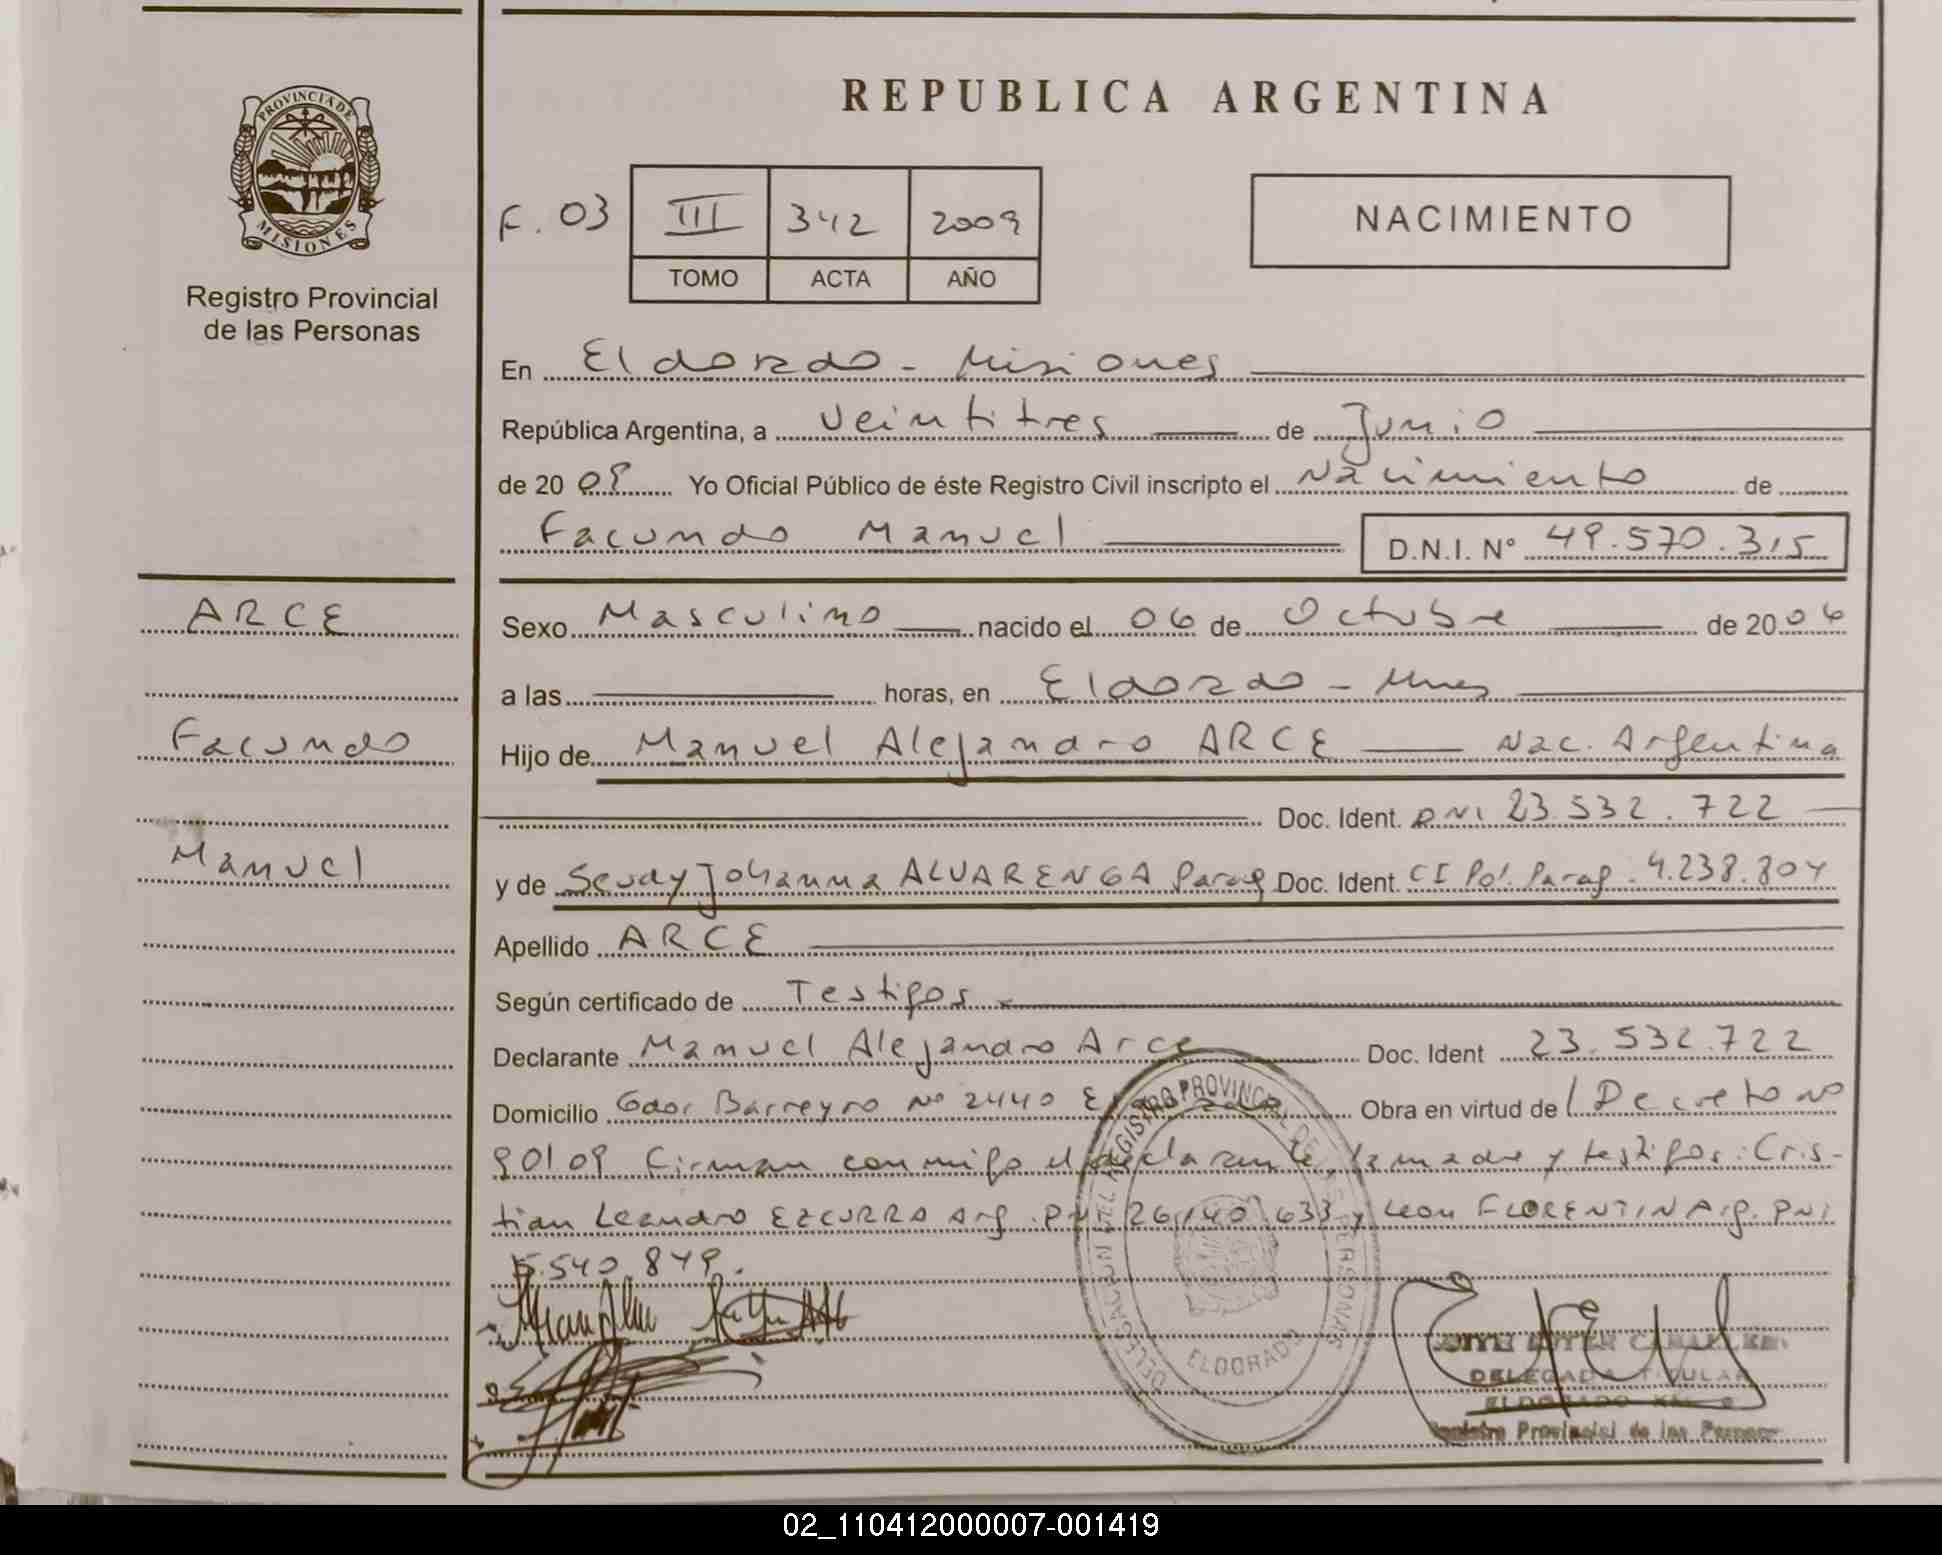 REPUBLICA ARGENTINA
PROVINCIA DE
MISIONES
Registro Provincial
de las Personas
F. 03
III 342 2009
TOMO ACTA AÑO
NACIMIENTO
En Eldorado - Misiones
República Argentina, a Veintitres de Junio
de 20 09 Yo Oficial Público de éste Registro Civil inscripto el Nacimiento de
Facundo Manuel D.N.I. Nº 49.570.315
ARCE
Facundo
Manuel
Sexo Masculino nacido el 06 de Octubre de 20 06
a las horas, en Eldorado - Mnes
Hijo de Manuel Alejandro ARCE Nac. Argentina
Doc. Ident. DNI 23.532.722
y de Johanna ALVARENGA Parag Doc. Ident. CI Pol. Parag. 4.238.804
Apellido ARCE
Según certificado de Testigos
Declarante Manuel Alejandro Arce Doc. Ident 23.532.722
Domicilio Gdor Barreyro Nº 2440 Obra en virtud de Decreto Nº
90/09 Firman conmigo el declarante, la madre y testigos: Cris-
tian Leandro EZCURRA Arg. DNI 26.140.633 y Leon FLORENTIN Arg. DNI
5.540.849.
DELEGACION REGISTRO PROVINCIAL DE LAS PERSONAS
ELDORADO
DELEGADA TITULAR
ELDORADO
Registro Provincial de las Personas
02_110412000007-001419